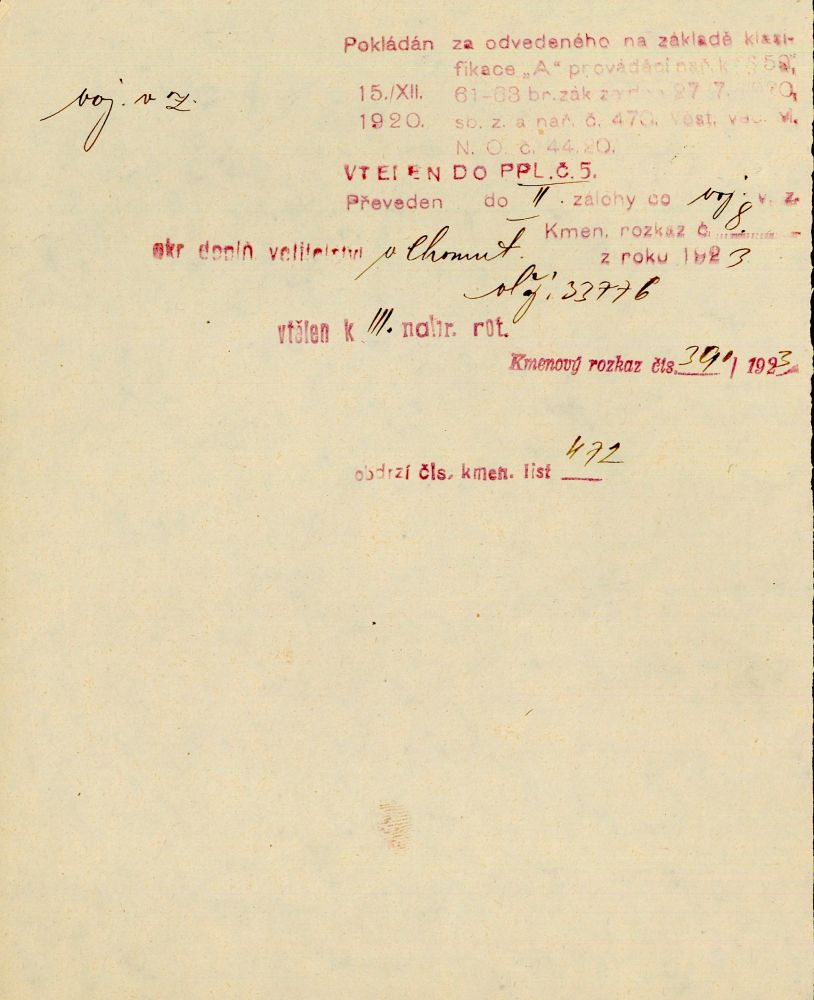 Pokládán za odvedeného na základě klasi-
fikace „A“ prováděcí nař. k § 50,
voj. v z.
15./XII. 61-68 br. zák ze dne 27. 7. 1920,
1920. sb. z. a nař. č. 470. Věst. věc. M.
N. O. č. 44.20.
VTĚLEN DO PPL. č. 5.
Převeden do II. zálohy co voj. v. z.
Kmen. rozkaz č. 8.
okr doplň velitelství v Chomut. z roku 1923
33776
vtělen k III. nahr. rot.
Kmenový rozkaz čís. 390/1923
obdrží čís. kmen. list 472